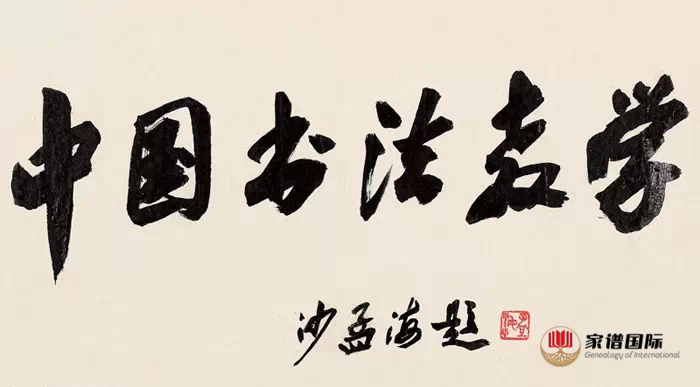 中国书法教学
沙孟海题
家谱国际
Genealogy of International